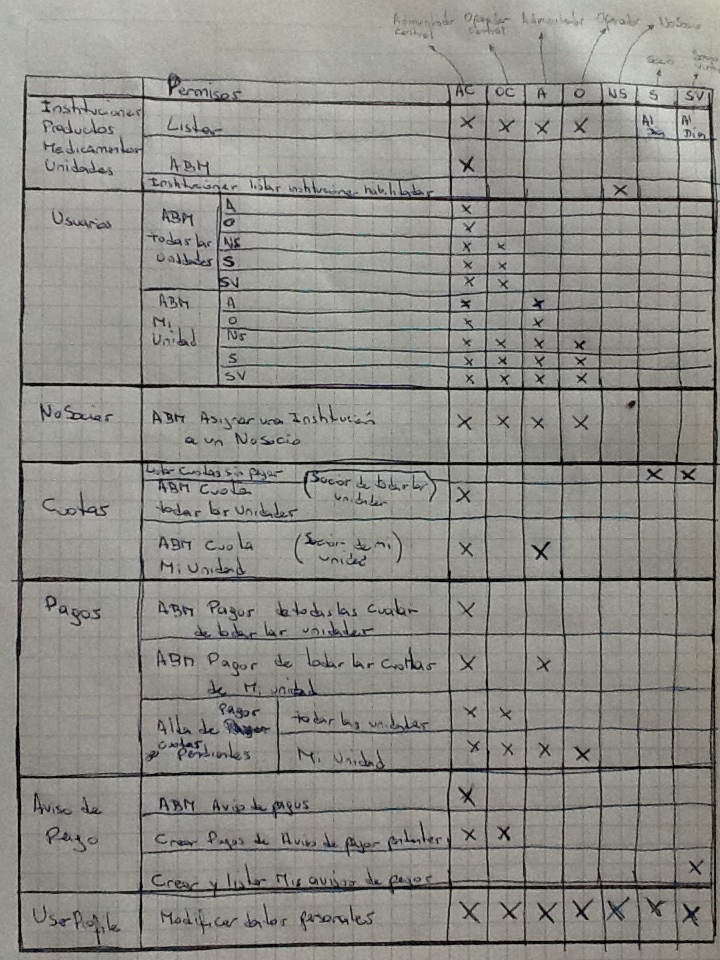 Administrador Operador Administrador Operador NoSocio
central central
Socio
Permisos AC OC A O NS S SV
Instituciones
Productos
Medicamentos
Unidades
Listar X X X X Al Día Al Día
ABM X
Instituciones listar instituciones habilitadas X
Usuarios
ABM todas las unidades
A X
O X
NS X X
S X X
SV X X
ABM Mi Unidad
A X X
O X X
NS X X X X
S X X X X
SV X X X X
NoSocios
ABM Asignar una Institución X X X X
a un NoSocio
Cuotas
Listar Cuotas sin pagar X X
ABM Cuota (Socios de todas las X
todas las unidades unidades)
ABM Cuota (Socios de mi X X
Mi Unidad unidad)
Pagos
ABM Pagos de todas las Cuotas X
de todas las unidades
ABM Pagos de todas las Cuotas X X
de Mi unidad
Pagos
Alta de
cuotas
Pendientes
todas las unidades X X
Mi Unidad X X X X
Aviso de
Pago
ABM Aviso de pagos X
Crear Pagos de Aviso de pagos pendientes X X
Crear y listar Mis avisos de pagos X
UserProfile Modificar datos personales X X X X X X X